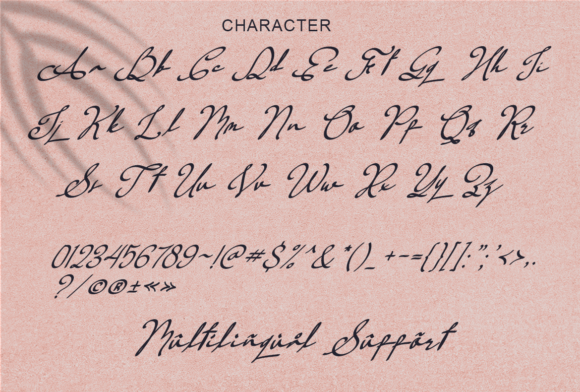 CHARACTER
Aa Bb Cc Dd Ee Ff Gg Hh Ii
Jj Kk Ll Mm Nn Oo Pp Qq Rr
Ss Tt Uu Vv Ww Xx Yy Zz
0123456789~!@#$%^&*()_+-={}[]:";'<>,.
?/©®±«»
Mûltilïñqùål Sûppõrt